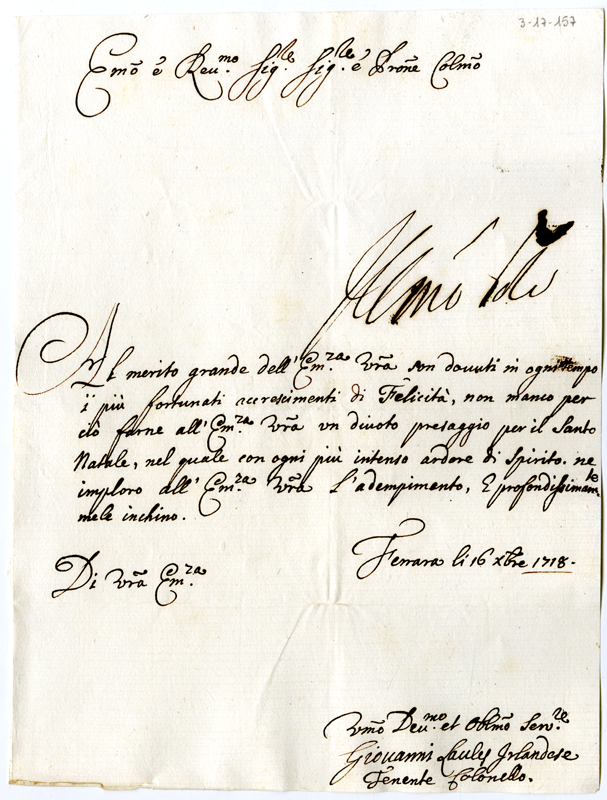 3-17-157
Emõ é Reu.mo Sig.le Sig.le é Prõne Colmõ
Al merito grande dell' Em.za Vrã son douuti in ogni tempo
ï più fortunati accrescimenti di Felicità, non manco per
ciò farne all' Em.za Vrã vn diuoto presaggio per il Santo
Natale, nel quale con ogni più intenso ardore di spirito. ne
imploro all' Em.za Vrã l'adempimento, E profondissimam.te
mele inchino.
Ferrara li 16 Xbre 1718.
Di Vrã Em.za
Vmõ Deu.mo et Oblmõ Ser.re
Giouanni Laules Irlandese
Tenente Colonello.